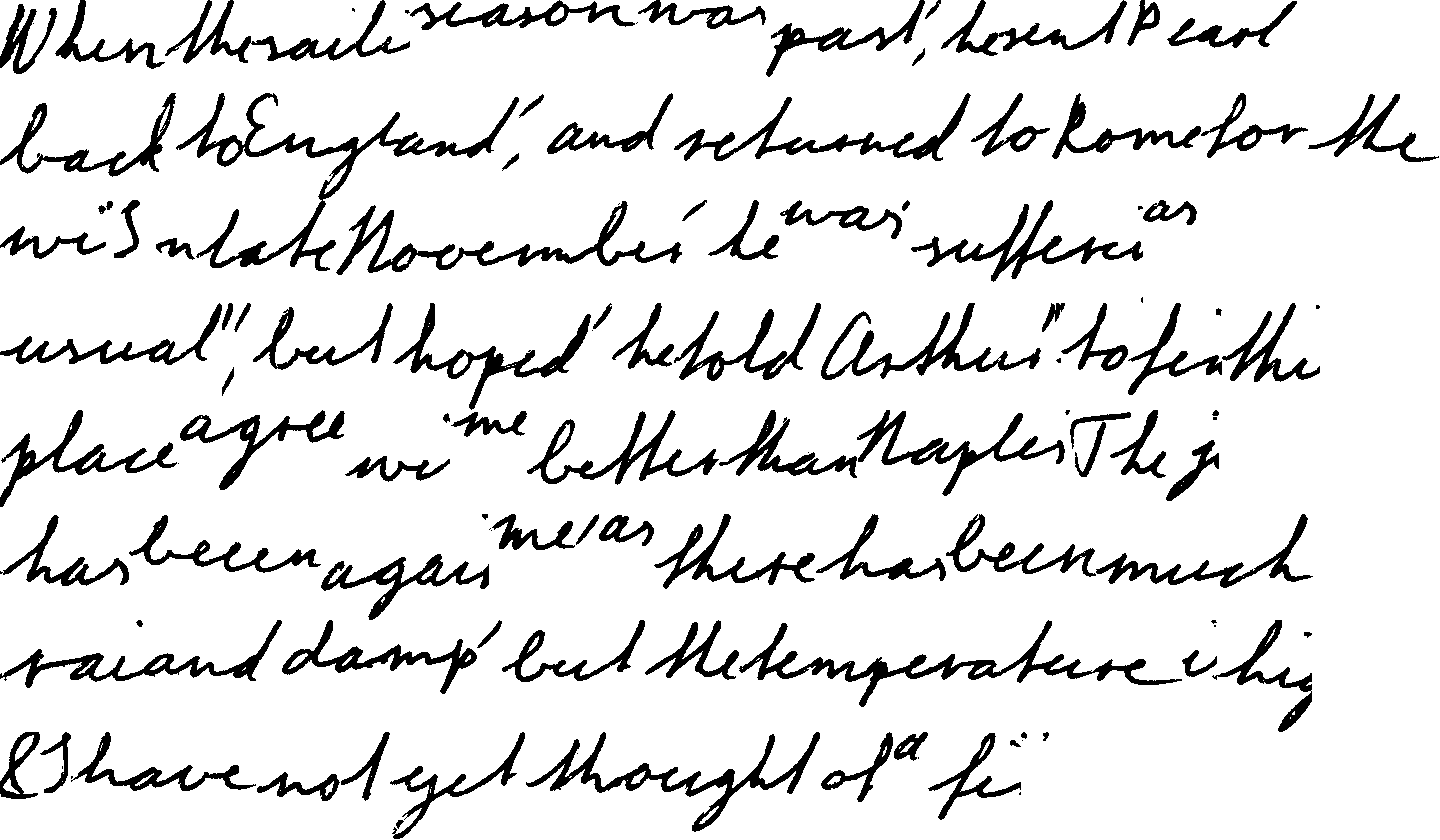 When the saili season was past, he sent Pearl
back to England, and returned to Rome for the
wi In late November he was sufferi as
usual", but hoped he told Arthur" to fi the
place agree wi me better than Naples The
has been agai me as there has been much
rai and damp but the temperature i hig
& I have not yet thought of a fi